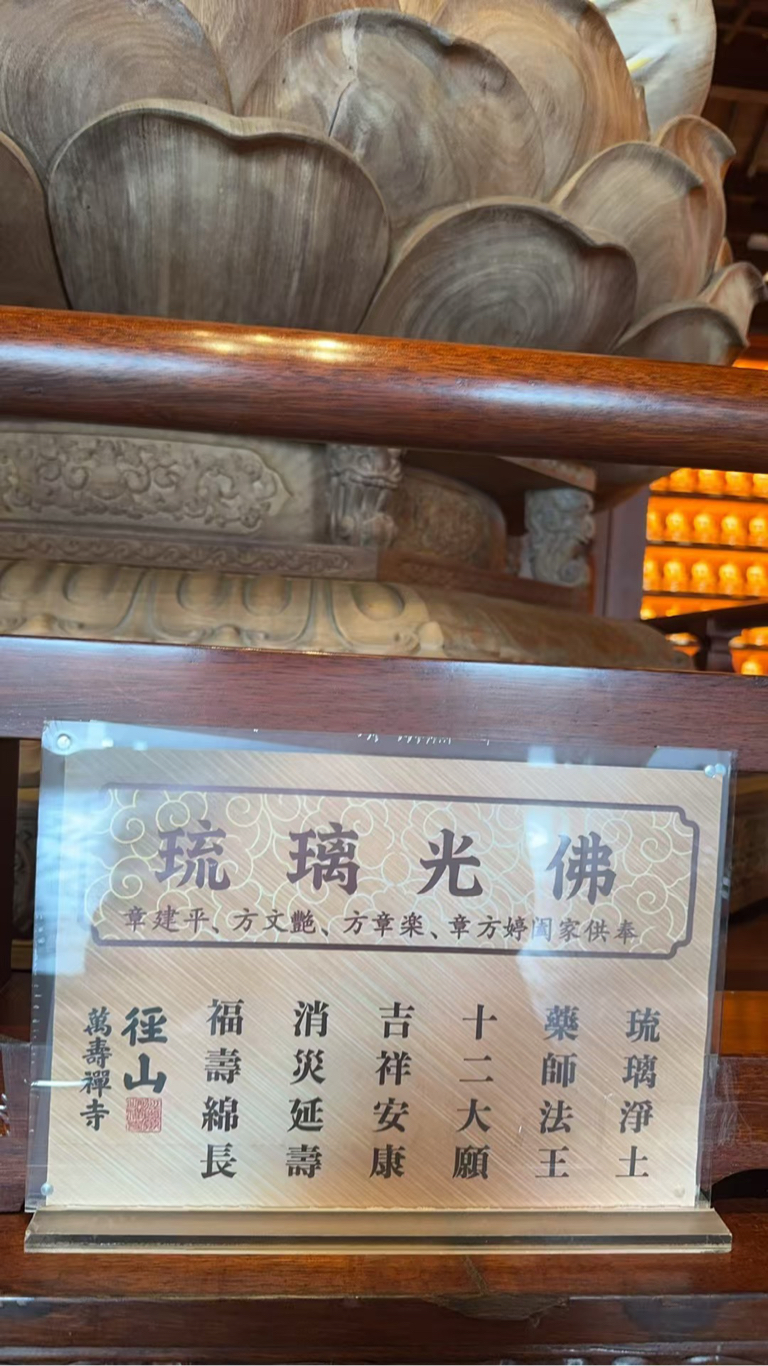 琉璃光佛
章建平、方文艷、方章楽、章方婷闔家供奉
琉璃淨土
藥師法王
十二大願
吉祥安康
消災延壽
福壽綿長
徑山
萬壽禪寺